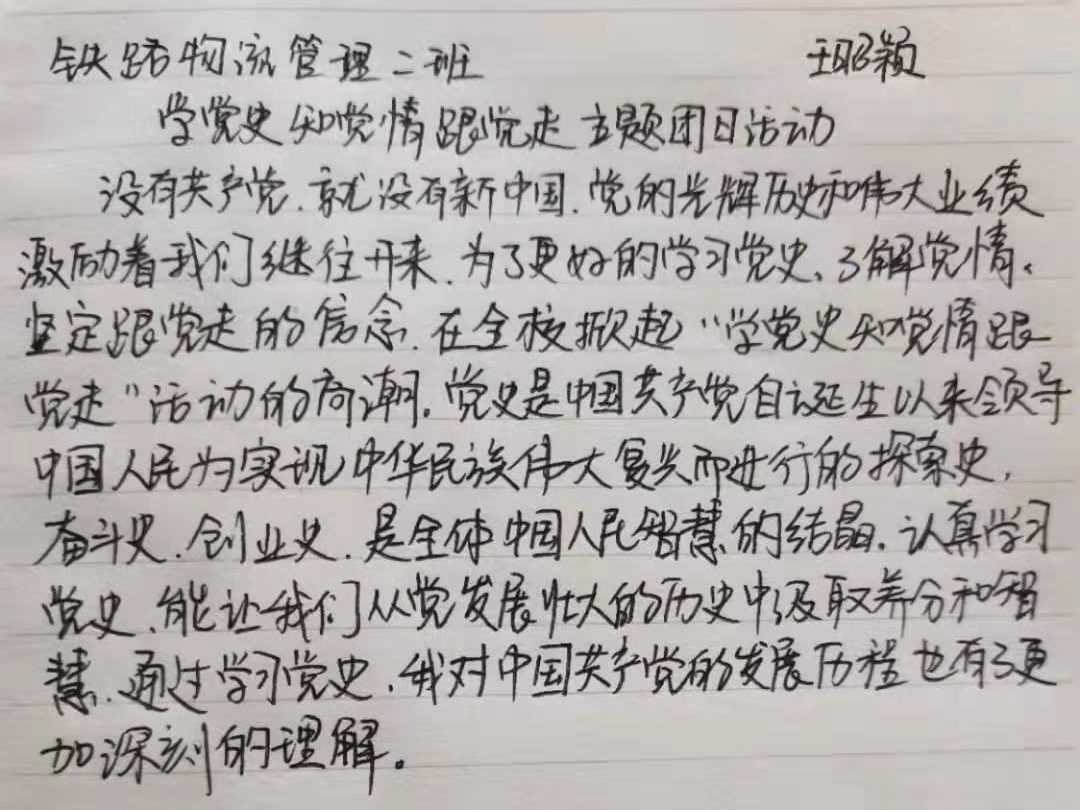 铁路物流管理二班 王昭颖
学党史 知党情 跟党走 主题团日活动
没有共产党.就没有新中国.党的光辉历史和伟大业绩
激励着我们继往开来.为了更好的学习党史、了解党情、
坚定跟党走的信念.在全校掀起“学党史知党情跟
党走”活动的高潮。党史是中国共产党自诞生以来领导
中国人民为实现中华民族伟大复兴而进行的探索史.
奋斗史.创业史.是全体中国人民智慧的结晶.认真学习
党史.能让我们从党发展壮大的历史中汲取养分和智
慧.通过学习党史.我对中国共产党的发展历程也有了更
加深刻的理解。